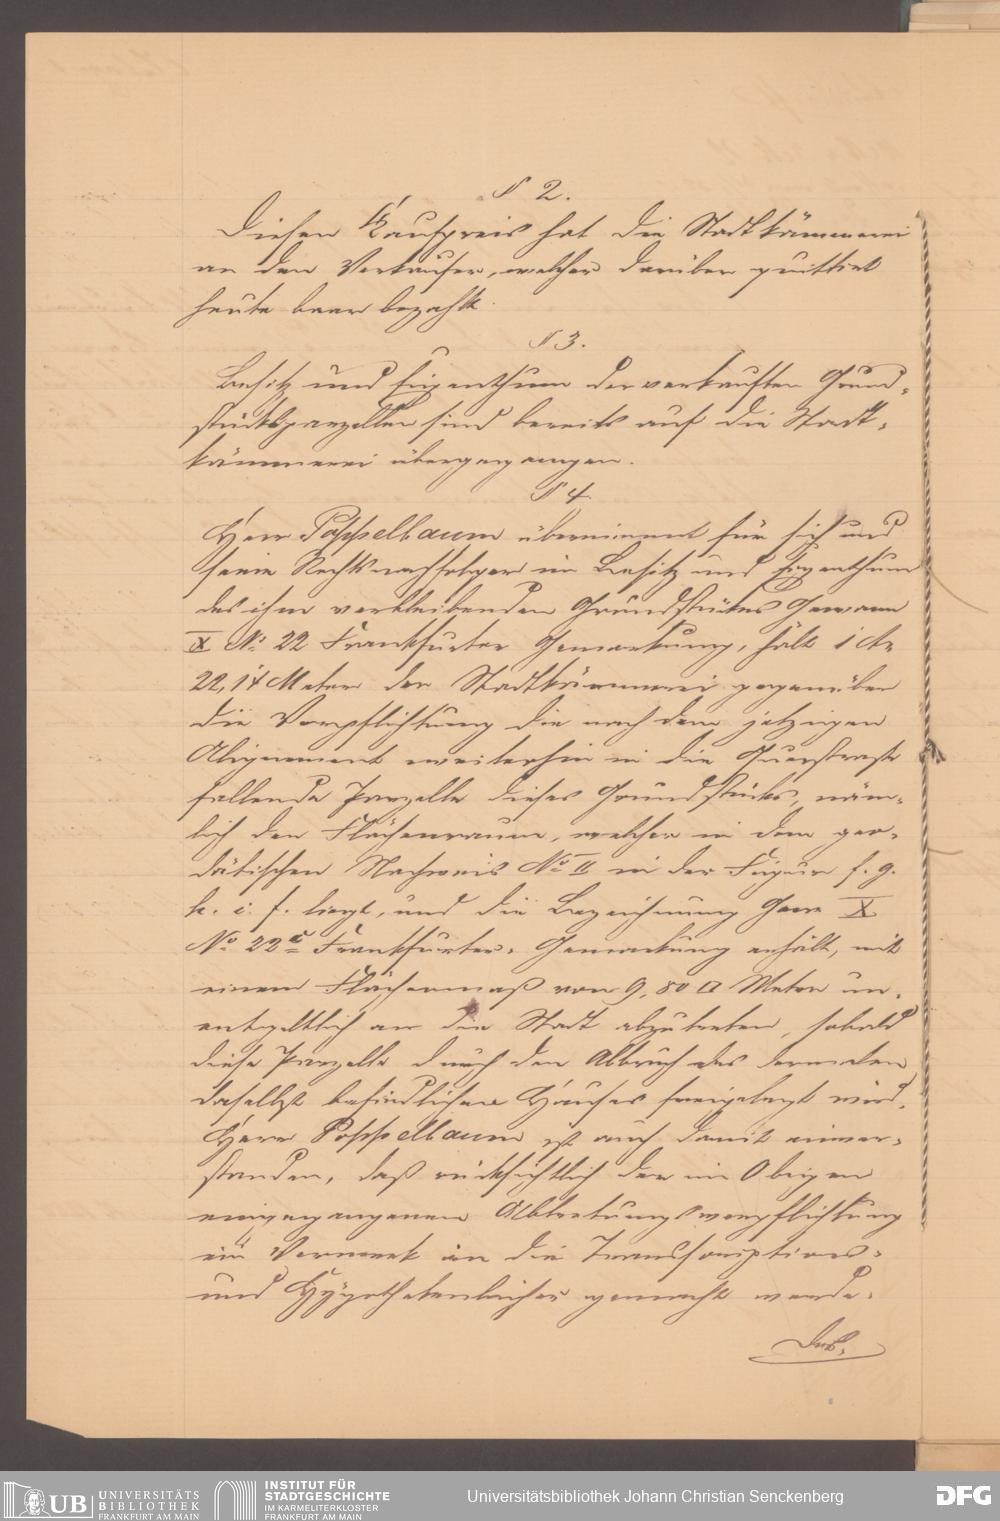 § 2.
Diesen Kaufpreis hat die Stadtkämmerei
an den Verkäufer, welcher darüber quittirt
heute baar bezahlt.
§ 3.
Besitz und Eigenthum der verkauften Grund-
stücksparzellen sind bereits auf die Stadt-
kämmerei übergegangen.
§ 4.
Herr Poppelbaum übernimmt für sich und
seine Rechtsnachfolger im Besitz und Eigenthum
des ihm verbleibenden Grundstückes Gewann
X No 22 Frankfurter Gemarkung, hält 1 Ar
22,14 Meter der Stadtkämmerei gegenüber
die Verpflichtung die nach dem jetzigen
Alignement weiterhin in die Querstrasse
fallende Parzelle dieses Grundstücks, näm-
lich den Flächenraum, welcher in dem geo-
dätischen Nachweis No II in der Figur f. g.
h. i. f. liegt, und die Bezeichnung Gew. X
No 22 Frankfurter Gemarkung enhält, mit
einem Flächenmaß von 9,80 □ Meter un-
entgeltlich an die Stadt abzutreten, sobald
diese Parzelle durch den Abbruch des dermalen
daselbst befindlichen Hauses freigelegt wird.
Herr Poppelbaum ist auch damit einver-
standen, daß rücksichtlich der im Obigen
eingegangenen Abtretungsverpflichtung
ein Vermerk in die Transscriptions-
und Hypothekenbücher gemacht werde.
UB UNIVERSITÄTS
BIBLIOTHEK
FRANKFURT AM MAIN
INSTITUT FÜR
STADTGESCHICHTE
IM KARMELITERKLOSTER
FRANKFURT AM MAIN
Universitätsbibliothek Johann Christian Senckenberg
DFG